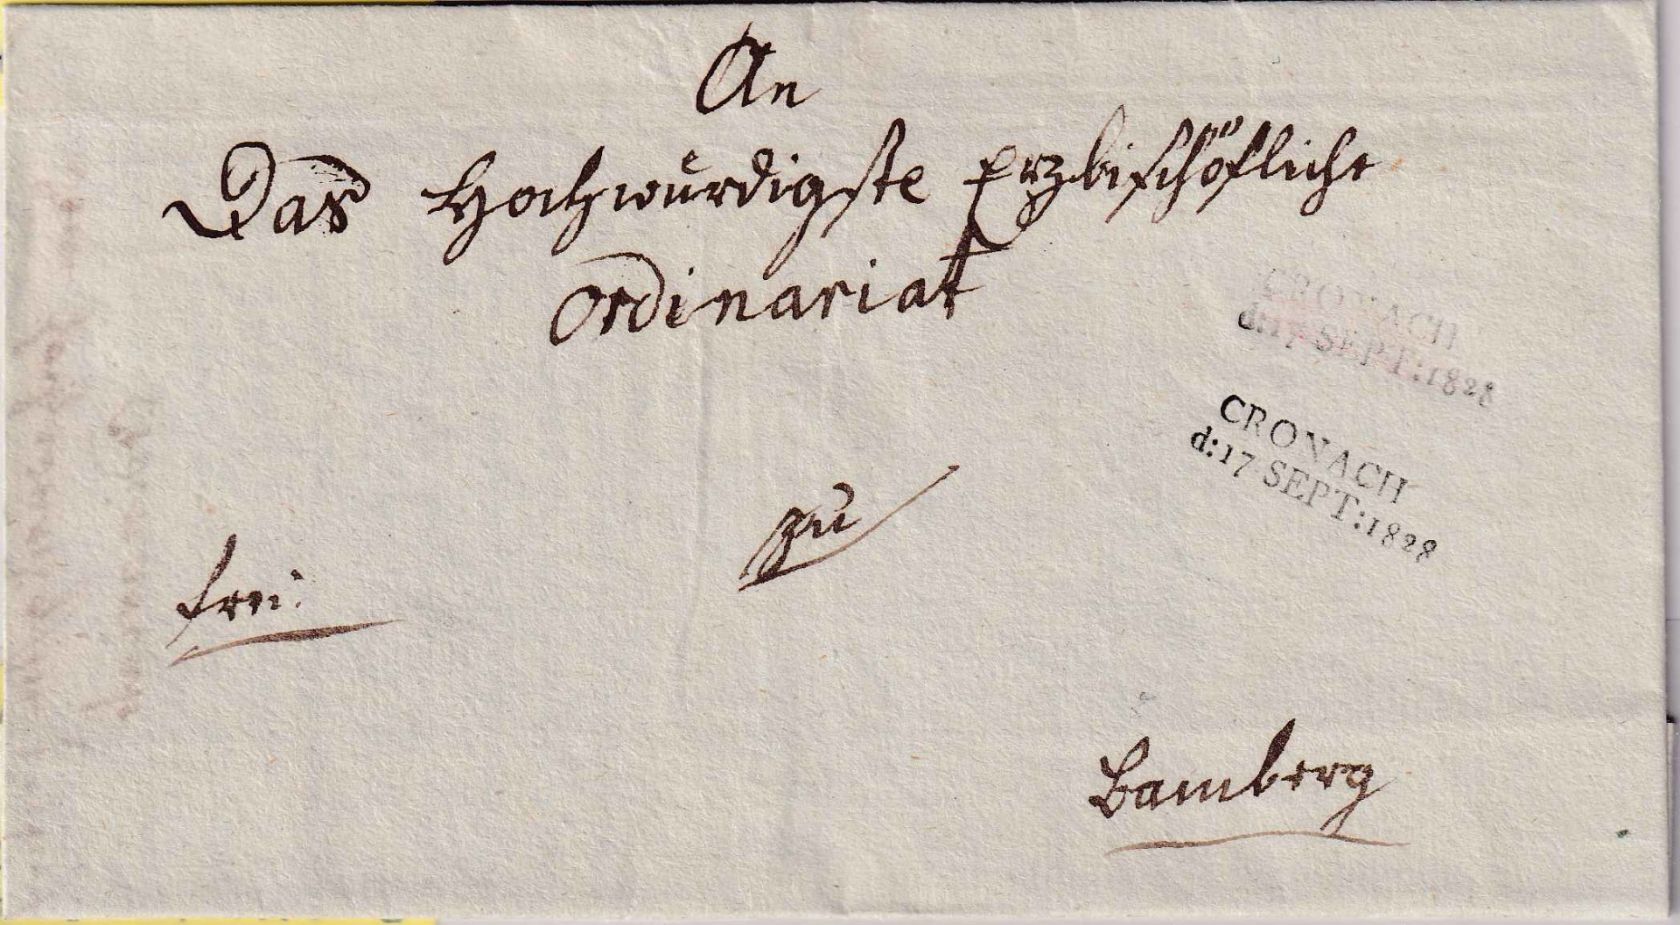 An
Das Hochwürdigste Erzbischöfliche
Ordinariat
CRONACH
d:17 SEPT:1828
CRONACH
d:17 SEPT:1828
zu
frei.
Bamberg